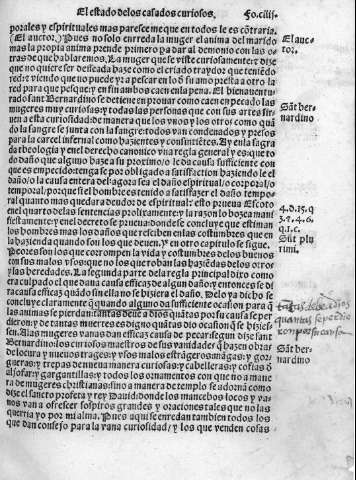 El estado delos casados curiosos. Fo.cliij.
porales y espirituales mas paresce me que en todos le es cõtraria.
(El auctor.) Pues no solo enreda la muger el anima del marido
mas la propia anima prende primero pa dar al demonio con las o-
tras de que hablaremos. La muger que se viste curiosamente: dize
que no quiere ser desseada base como el criado traydor que tenie do
red: y viendo que no puede yr a pescar en lo d̃ su amo presta a otro la
red para que pesque: y en fin ambos caen en la pena. El bienauentu-
rado sant Bernardino se detiene en prouar como caen en pecado las
mugeres muy curiosas: y todas las personas que con sus artes sir-
uen a esta curiosidad: de manera que los vnos y los otros como quã
do la sangre se junta con la sangre: todos van condenados y presos
para la carcel infernal como hazientes y consintiẽtes. Ay en la sagra
da theologia y enel derecho canonico vna regla general y es: que to
do daño que alguno haze a su proximo/o le da causa sufficiente con
que es empecido: tenga se por obligado a satisfaction haziendo le el
daño/o la causa entera del: agora sea el daño espiritual/o corporal/o
temporal/porque si el hombre es tenido a satisfazer el daño tempo-
ral quanto mas quedara deudor de espiritual: esto prueua Escoto
enel quarto delas sentencias prolixamente: y la razon lo dize a mani
fiestamente: y enel decreto se prueua: donde se concluye que estiman
los hombres mas los daños que resciben en las costumbres que en
la hazienda quando son los que deuen. y en otro capitulo se sigue.
Peores son los que corrompen la vida y costumbres delos buenos
con sus malos vsos: que no los que roban las haziẽdas delos otros
y las heredades. La segunda parte dela regla principal dizo como
era culpado el que daua causa efficaz de algun daño: y entonces se di-
ra causa efficaz quãdo sin ella no se hiziera el daño. Delo ya dicho se
concluye claramente q̃ quando alguno da sufficiente ocasion para q̃
las animas se pierdan: tantas deue a dios quãtas por su causa se per
dieron: y de tantas muertes es digno quãtas dio ocasion q̃ se hizies-
sen. Alas mugeres vanas dan efficaz causa de pecar segun dize sant
Bernardino: los curiosos maestros delas vanidades q̃ hazen obras
d̃ locura y nueuos trages: y vsos malos estrãgeros: mãgas: y gor-
gueras: y trepas de nueua manera curiosas: y cabelleras: y cofias d̃
aljofar: y gargantillas: y todos los ornamentos con que no a mane
ra de mugeres christianas: sino a manera de templo se adornã como
dize el sancto profeta y rey Dauid: donde los mancebos locos y va-
nos van a ofrescer sospiros grandes y oraciones tales que no las
querria yo por mi alma. Pues aqui se enredan tambien todos los
que dan consejo para la vana curiosidad: y los que venden cosas
El auc-
tor.
Sãt ber-
nardino
4.d.15.q
3.2.4.6.
q.1.c.
Sũt plu
rimi.
tantas debe a dios
quantas se perdiero
por su causa
Sãt ber-
nardino